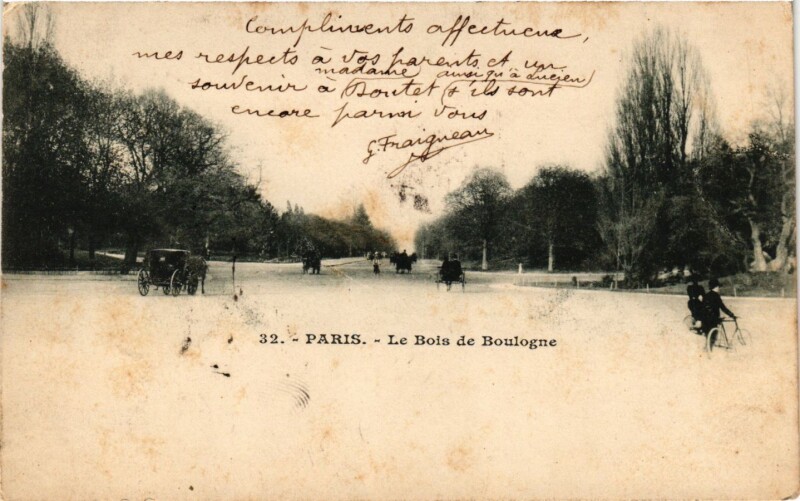 Compliments affectueux,
mes respects à vos parents et un
madame ainsi qu'à Lucien
souvenir à Boutet (s'ils sont
encore parmi vous
G. Fraigneau
32. - PARIS. - Le Bois de Boulogne